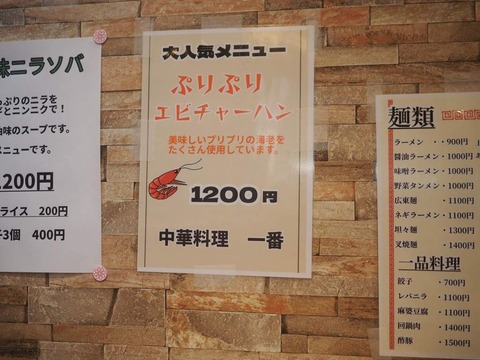 味ニラソバ
っぷりのニラを
ドとニンニクで！
油味のスープです。
メニューです。
1200円
ライス 200円
子3個 400円
大人気メニュー
ぷりぷり
エビチャーハン
美味しいプリプリの海老を
たくさん使用しています。
1200円
中華料理 一番
麺類
ラーメン ・・900円
醤油ラーメン ・1000円
味噌ラーメン ・1000円
野菜タンメン ・1000円
広東麺 ・1100円
ネギラーメン ・1100円
坦々麺 ・1300円
叉焼麺 ・1400円
一品料理
餃子 ・700円
レバニラ ・1100円
麻婆豆腐 ・1100円
回鍋肉 ・1400円
酢豚 ・1500円